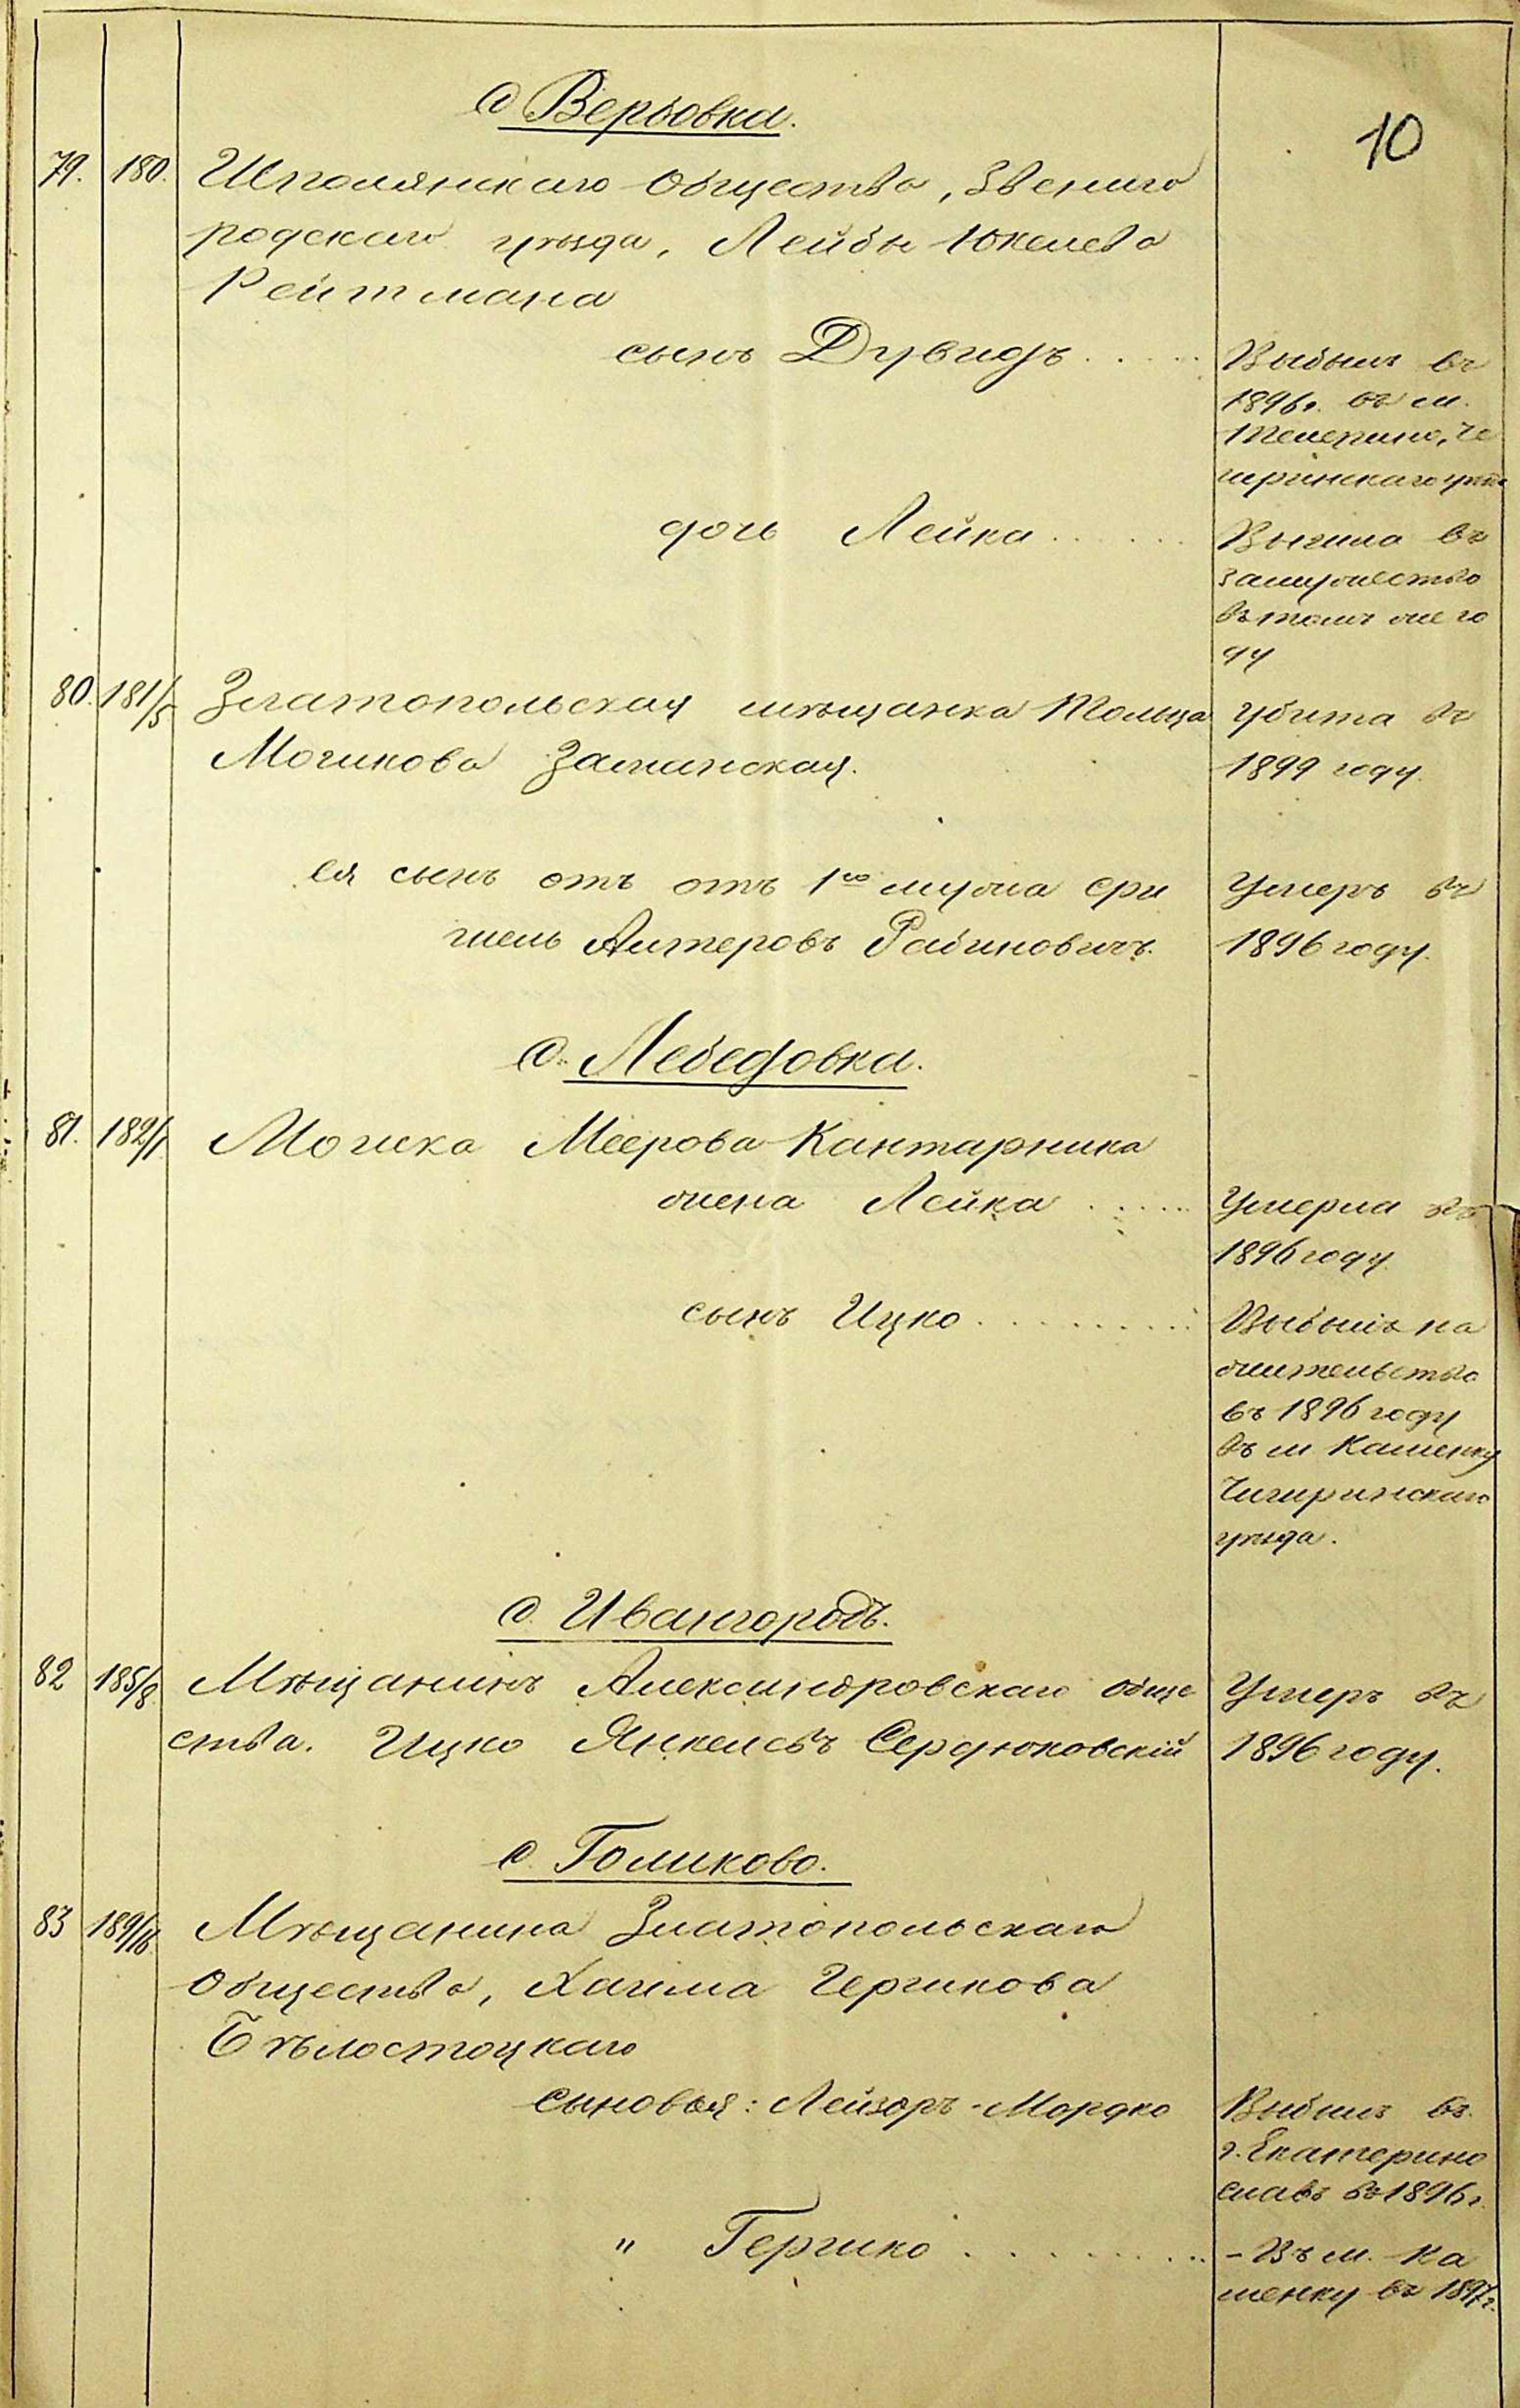 с Вербовка.
10
79. 180. Шполянскаго Общества, Звениго
родскаго уѣзда, Лейбы Юкелева
Рейтмана
сынъ Дувидъ . . . . .
Выбылъ въ
1896г. въ м.
Телепино, Чи
гиринскаго уѣзд
дочь Лейка . . . . . .
Вышла въ
замужество
въ томъ же го
ду
80. 181/5 Златопольская мѣщанка Тольца
Мошкова Заминская.
Убита въ
1899 году.
ея сынъ отъ отъ 1го мужа Ври
шель Алтеровъ Рабиновичъ.
Умеръ въ
1896 году.
с. Лебедовка.
81. 182/1 Мошка Меерова Кантарника
жена Лейка . . . . .
Умерла въ
1896 году.
сынъ Ицко . . . . . . . .
Выбылъ на
жительство
въ 1896 году
въ м Каменку
Чигиринскаго
уѣзда.
с. Ивангородъ.
82 185/8 Мѣщанинъ Александровскаго обще
ства. Ицко Янкелевъ Сердюковскій
Умеръ въ
1896 году.
с. Голиково.
83 189/16 Мѣщанина Златопольскаго
Общества, Хаима Гершкова
Бѣлостоцкаго
сыновья: Лейзоръ-Мордко
Выбылъ въ
г. Екатерино
славъ въ 1896г.
" Гершко . . . . . . . . .
- Въ м. Ка
менку въ 1897г.